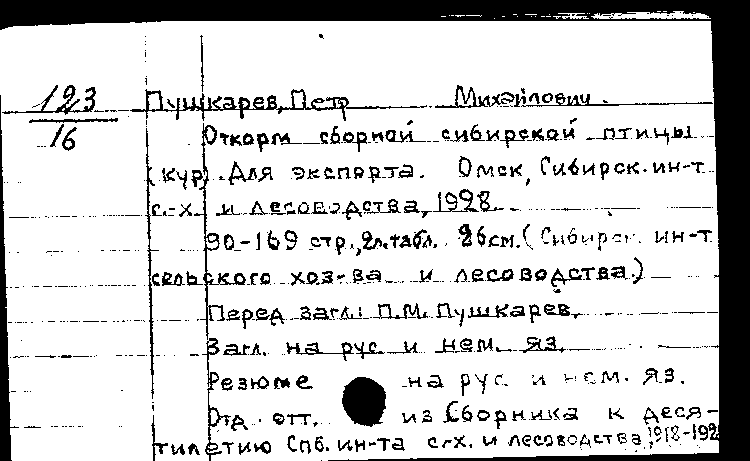 123
16
Пушкарев, Петр Михайлович.
Откорм сборной сибирской птицы
(кур). Для экспорта. Омск, Сибирск. ин-т
с.-х. и лесоводства, 1928.
90-169 стр., 2л.табл. 26см. (Сибирск. ин-т
сельского хоз-ва и лесоводства.)
Перед загл.: П.М. Пушкарев.
Загл. на рус. и нем. яз.
Резюме на рус. и нем. яз.
Отд. отт. из Сборника к деся-
тилетию Спб. ин-та с.-х. и лесоводства, 1918-192